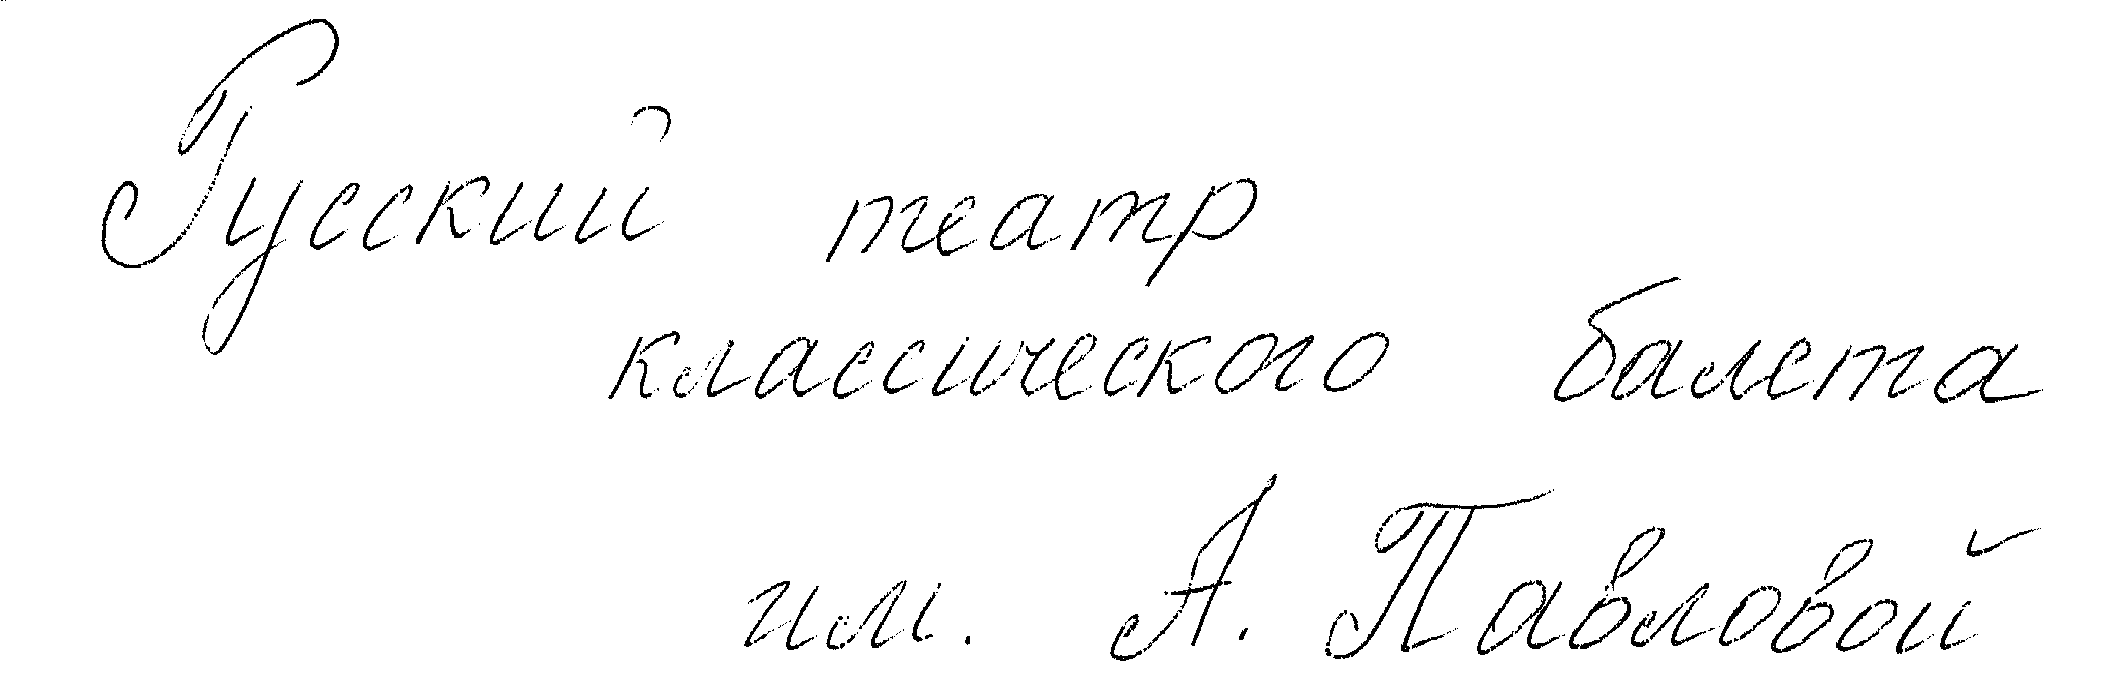 Русский театр
классического балета
им. А. Павловой